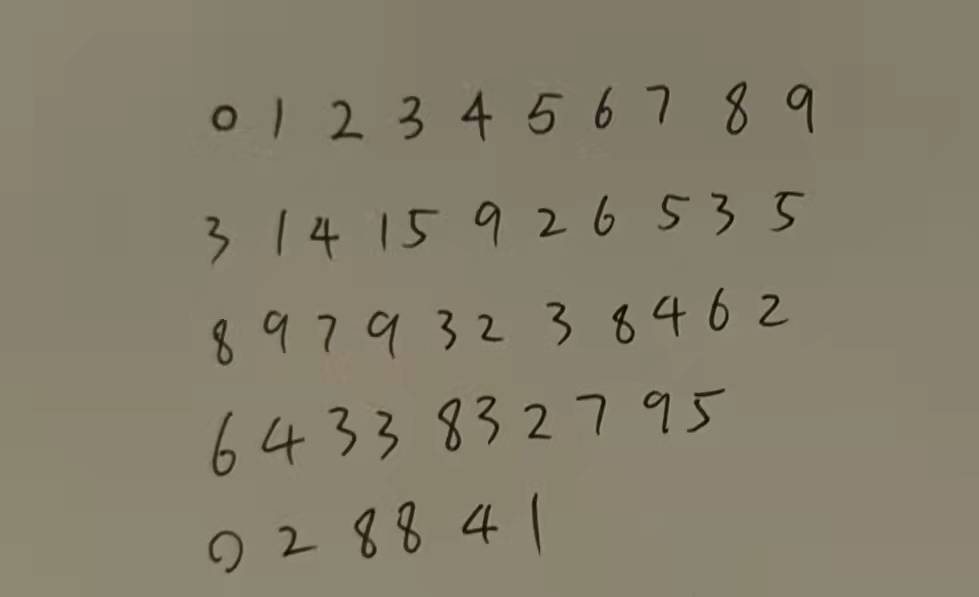 0 1 2 3 4 5 6 7 8 9
3 1 4 1 5 9 2 6 5 3 5
8 9 7 9 3 2 3 8 4 6 2
6 4 3 3 8 3 2 7 9 5
0 2 8 8 4 1